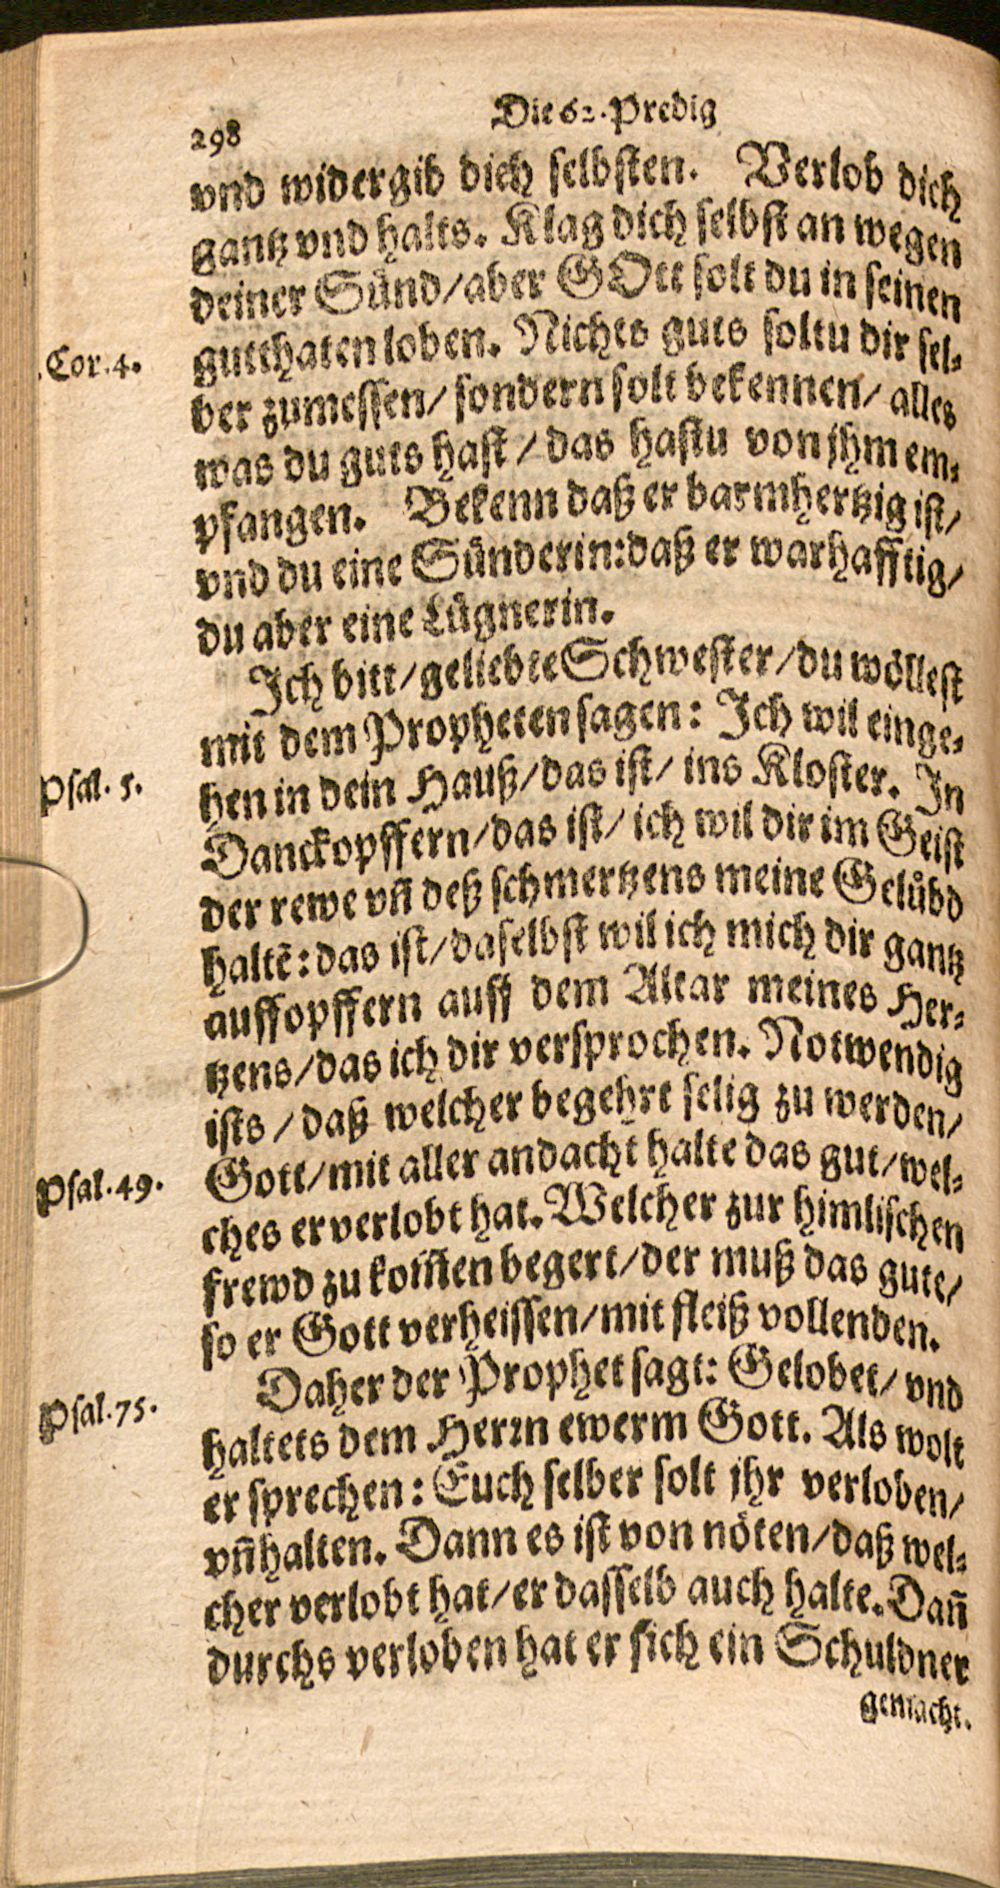 298
Die 62. Predig
vnd widergib dich selbsten. Verlob dich
gantz vnd halts. Klag dich selbst an wegen
deiner Sünd/aber GOtt solt du in seinen
gutthaten loben. Nichts guts soltu dir sel-
.Cor.4.
ber zumessen/ sondern solt bekennen/ alles
was du guts hast / das hastu von jhm em-
pfangen. Bekenn daß er barmhertzig ist/
vnd du eine Sünderin: daß er warhafftig/
du aber eine Lügnerin.
Ich bitt/geliebte Schwester/du wöllest
mit dem Propheten sagen: Ich wil einge-
Psal. 5.
hen in dein Hauß/das ist/ ins Kloster. In
Danckopffern/das ist/ ich wil dir im Geist
der rewe vñ deß schmertzens meine Gelübd
haltē: das ist/daselbst wil ich mich dir gantz
auffopffern auff dem Altar meines Her-
tzens/das ich dir versprochen. Notwendig
ists / daß welcher begehrt selig zu werden/
Psal.49.
Gott/mit aller andacht halte das gut/wel-
ches er verlobt hat. Welcher zur himlischen
frewd zu kom̃en begert/der muß das gute/
so er Gott verheissen/mit fleiß vollenden.
Psal.75.
Daher der Prophet sagt: Gelobet/ vnd
haltets dem Herrn ewerm Gott. Als wolt
er sprechen: Euch selber solt jhr verloben/
vñ halten. Dann es ist von nöten/daß wel-
cher verlobt hat/er dasselb auch halte. Dañ
durchs verloben hat er sich ein Schuldner
gemacht.